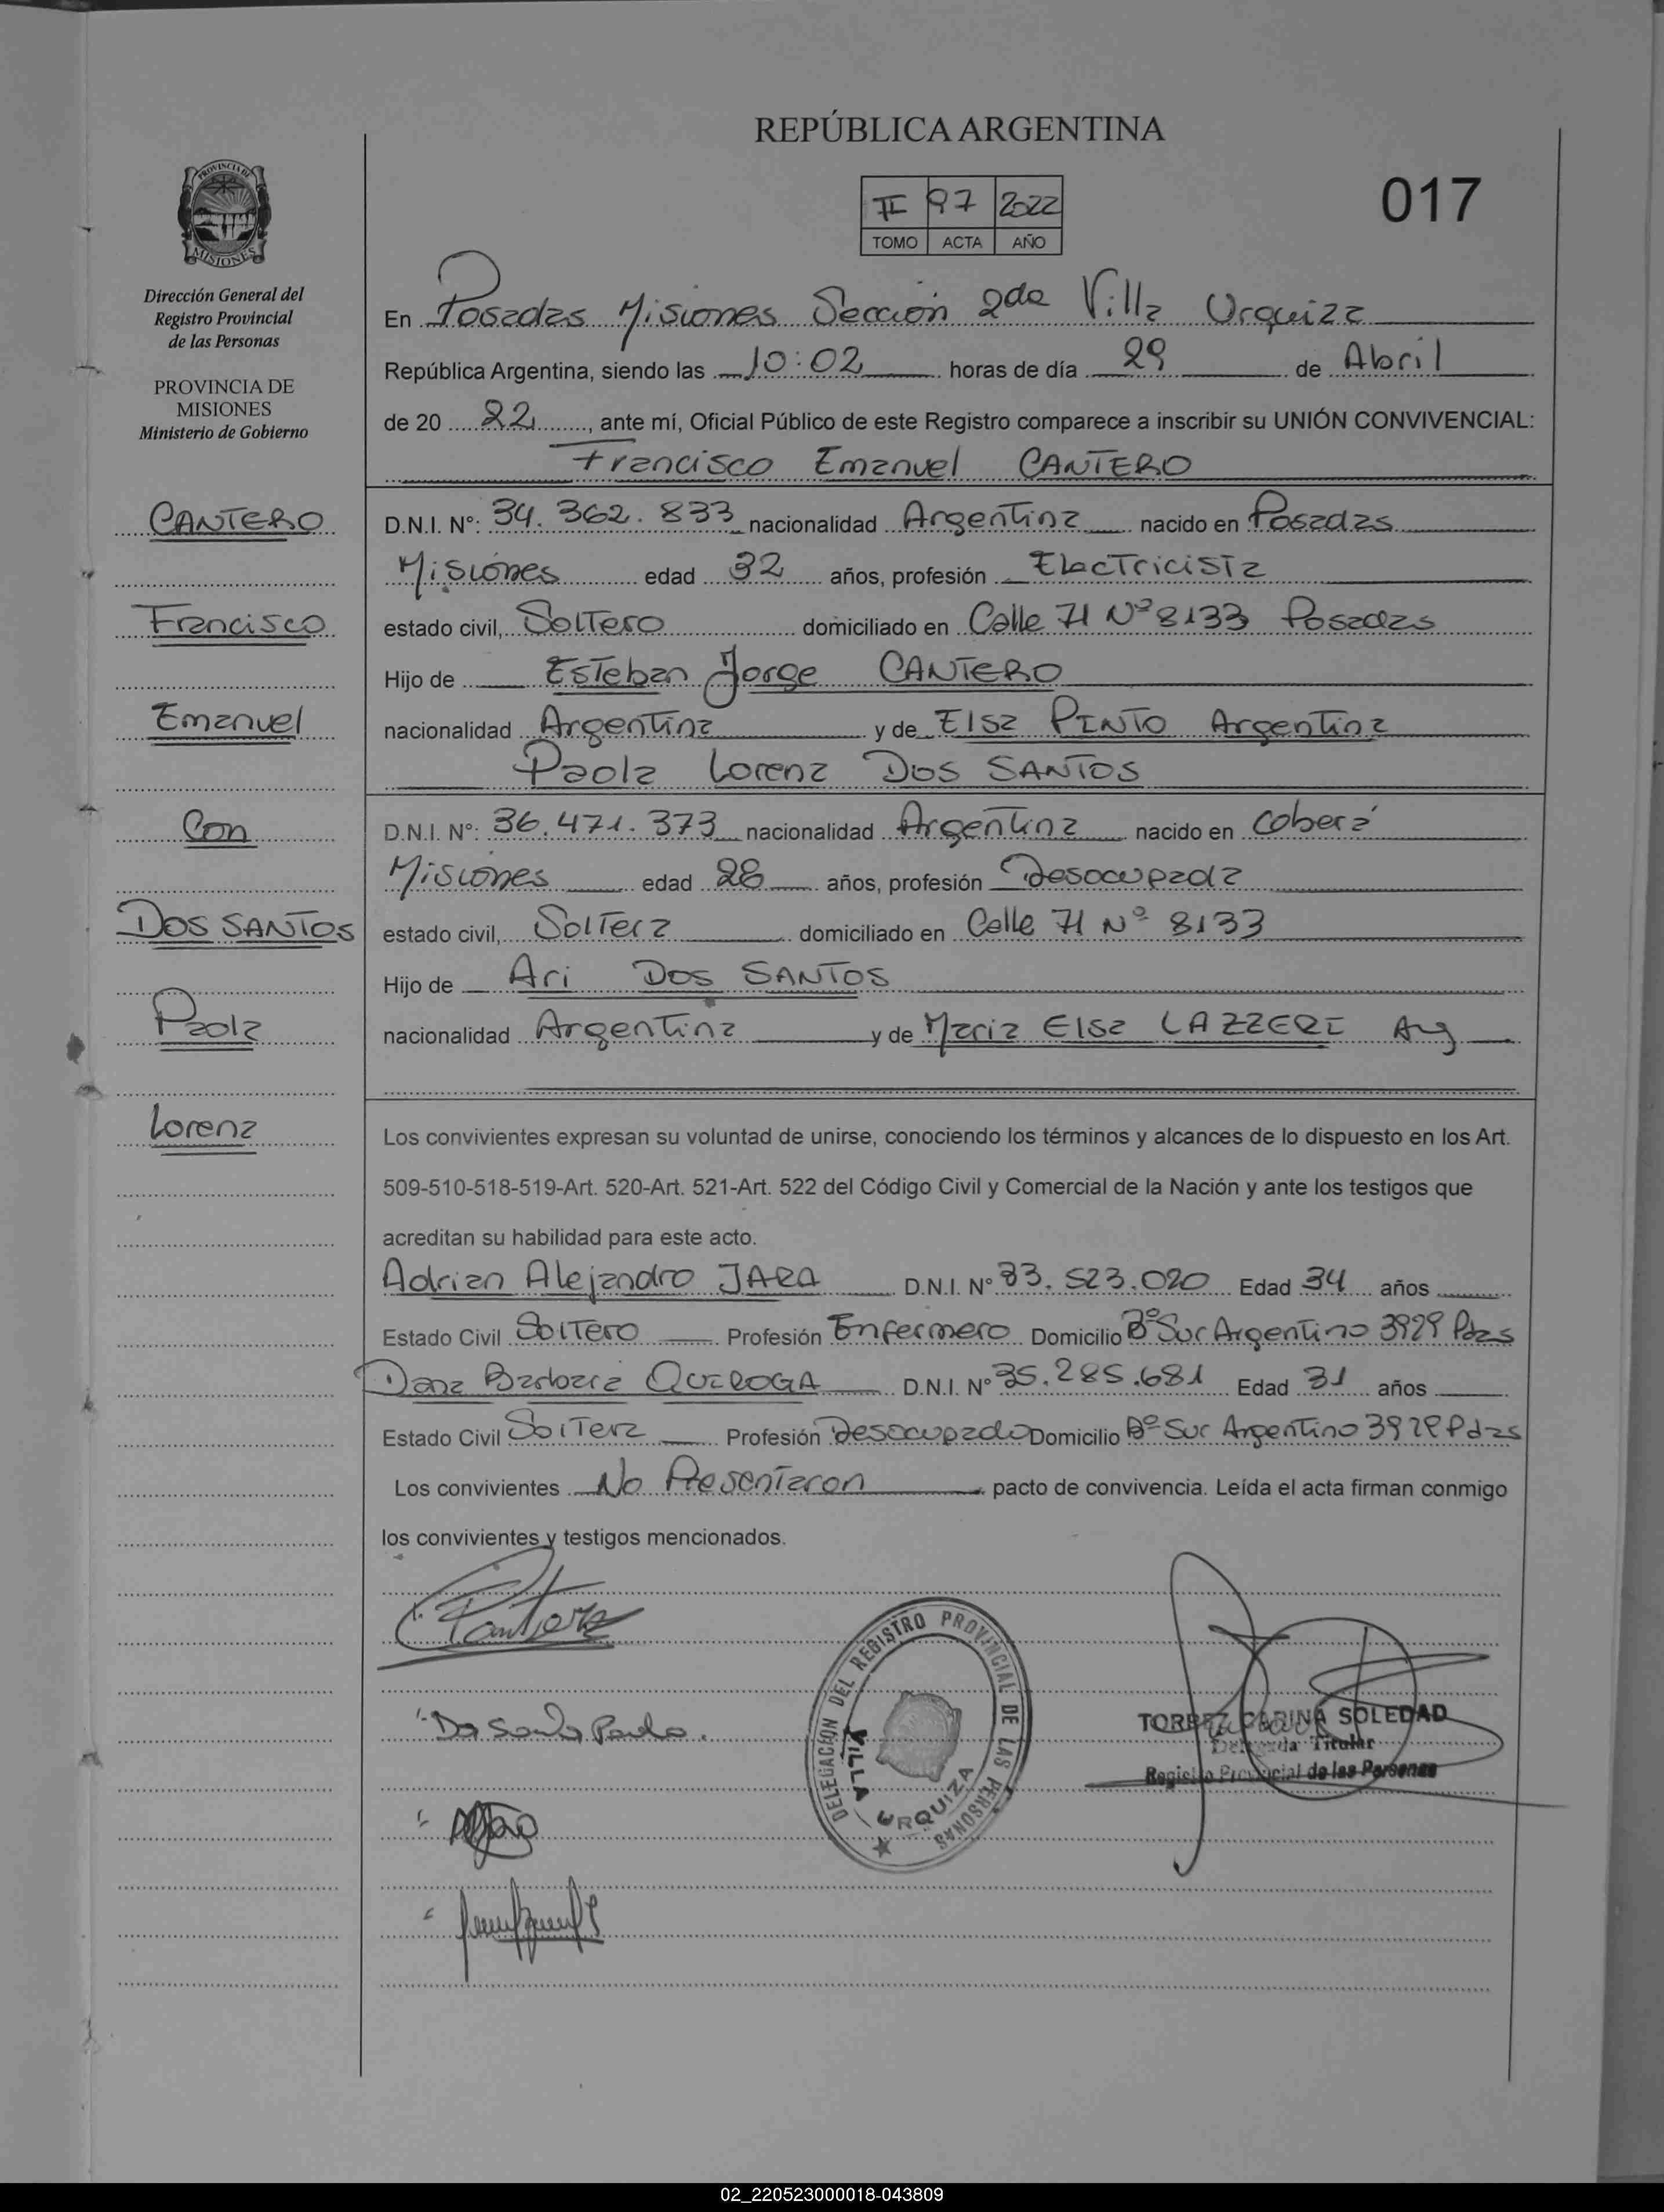 REPÚBLICA ARGENTINA
017
II 97 2022
TOMO ACTA AÑO
PROVINCIA DE
MISIONES
Dirección General del
Registro Provincial
de las Personas
PROVINCIA DE
MISIONES
Ministerio de Gobierno
En Posadas Misiones Sección 2da Villa Urquiza
República Argentina, siendo las 10:02 horas de día 29 de Abril
de 20 22, ante mí, Oficial Público de este Registro comparece a inscribir su UNIÓN CONVIVENCIAL:
Francisco Emanuel CANTERO
CANTERO
Francisco
Emanuel
Con
DOS SANTOS
Paola
Lorena
D.N.I. N°: 34.362.833 nacionalidad Argentina nacido en Posadas
Misiones edad 32 años, profesión Electricista
estado civil, Soltero domiciliado en Calle 71 Nº 8133 Posadas
Hijo de Esteban Jorge CANTERO
nacionalidad Argentina y de Elsa PINTO Argentina
Paola Lorena DOS SANTOS
D.N.I. N°: 36.471.373 nacionalidad Argentina nacido en Oberá
Misiones edad 28 años, profesión Desocupada
estado civil, Soltera domiciliado en Calle 71 Nº 8133
Hijo de Ari DOS SANTOS
nacionalidad Argentina y de Maria Elsa LAZZERI Arg
Los convivientes expresan su voluntad de unirse, conociendo los términos y alcances de lo dispuesto en los Art.
509-510-518-519-Art. 520-Art. 521-Art. 522 del Código Civil y Comercial de la Nación y ante los testigos que
acreditan su habilidad para este acto.
Adrian Alejandro JARA D.N.I. N° 33.523.020 Edad 34 años
Estado Civil Soltero Profesión Enfermero Domicilio Bº Sur Argentino 3929 Pdas
Dana Barbara QUIROGA D.N.I. N° 35.285.681 Edad 31 años
Estado Civil Soltera Profesión Desocupado Domicilio Bº Sur Argentino 3929 Pdas
Los convivientes No Presentaron pacto de convivencia. Leída el acta firman conmigo
los convivientes y testigos mencionados.
Cantero
Dos Santos Paola.
DELEGACIÓN DEL REGISTRO PROVINCIAL DE LAS PERSONAS
VILLA URQUIZA
TORREZ CARINA SOLEDAD
Delegada Titular
Registro Provincial de las Personas
02_220523000018-043809